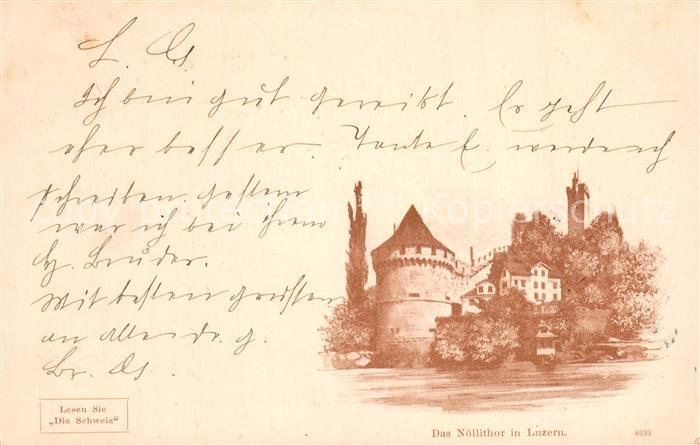 L. Os.
Ich bin gut gereist. Er geht
eher besser. Tante E. werde ich
schreiben. Gestern
war ich bei Ihrem
H. Bruder.
Mit besten Grüssen
an Alle Dr. g.
Br. Os.
Lesen Sie
„Die Schweiz"
Das Nöllithor in Luzern.
6033